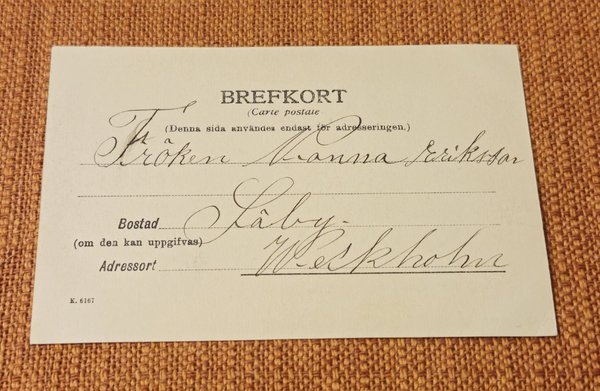 BREFKORT
(Carte postale
(Denna sida användes endast för adresseringen.)
Fröken Nanna Eriksson
Bostad Säby.
(om den kan uppgifvas)
Adressort Westkholm
K. 6167